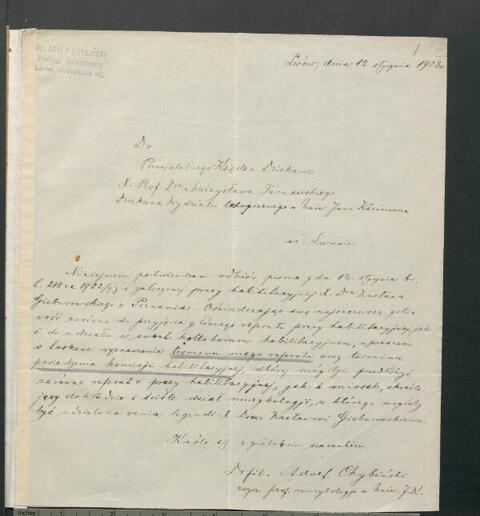 Dr. ADOLF CHYBIŃSKI
Profesor Uniwersytetu
1
Lwów, dnia 12 stycznia 1923 r.
Do
Przewielebnego Księdza Dziekana
X. Prof. Dra Mieczysława Tarnawskiego
Dziekana Wydziału teologicznego Uniw. Jana Kazimierza
we Lwowie
Niniejszem potwierdzam odbiór pisma z dn. 12 stycznia br.
L. 218 ex 1922/23 i załączonej pracy habilitacyjnej X. Dra Wacława
Gieburowskiego z Poznania. Oświadczając swą najszczerszą goto-
wość zarówno do przyjęcia głównego referatu pracy habilitacyjnej, jak
i do udziału w kolloquium habilitacyjnem, upraszam
o łaskawe wyznaczenie terminu mego referatu oraz terminu
posiedzenia komisji habilitacyjnej, której mógłbym przedłożyć
zarówno referat o pracy habilitacyjnej, jak i wniosek, określa-
jący dokładnie i ściśle dział muzykologji, z którego mogłaby
być udzielona venia legendi X. Drowi Wacławowi Gieburowskiemu.
Kreślę się z głębokim szacunkiem
Dr fil. Adolf Chybiński
prof. muzykologji Uniw. J. K.